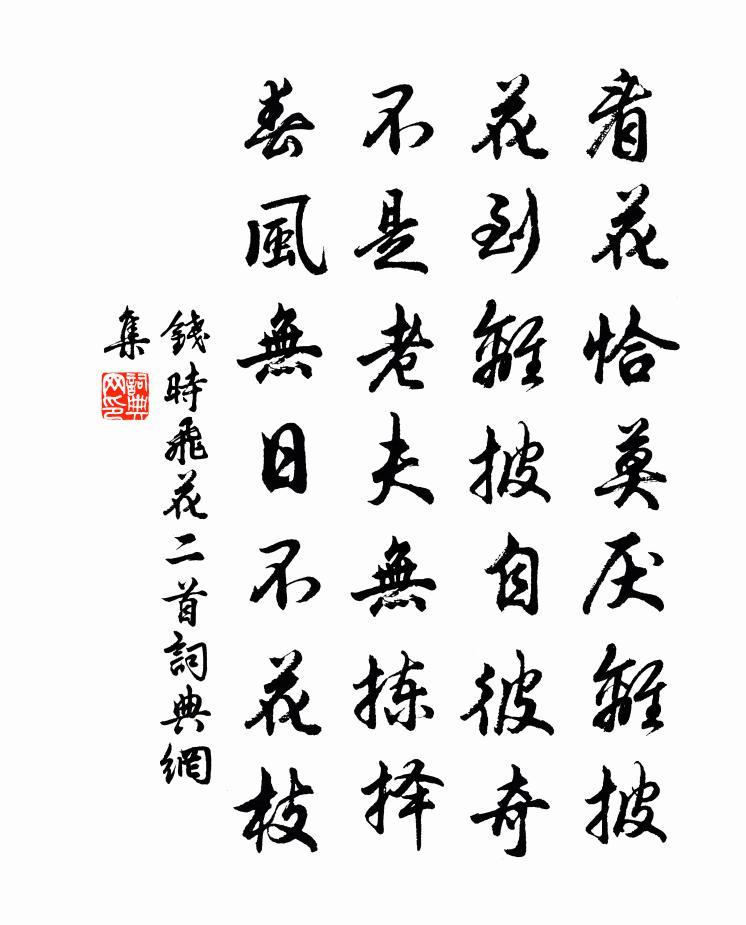 看花恰莫厌離披
花到離披自彼奇
不是老夫無拣择
春風無日不花枝
錢時飛花二首詞典網
集
詞典网印